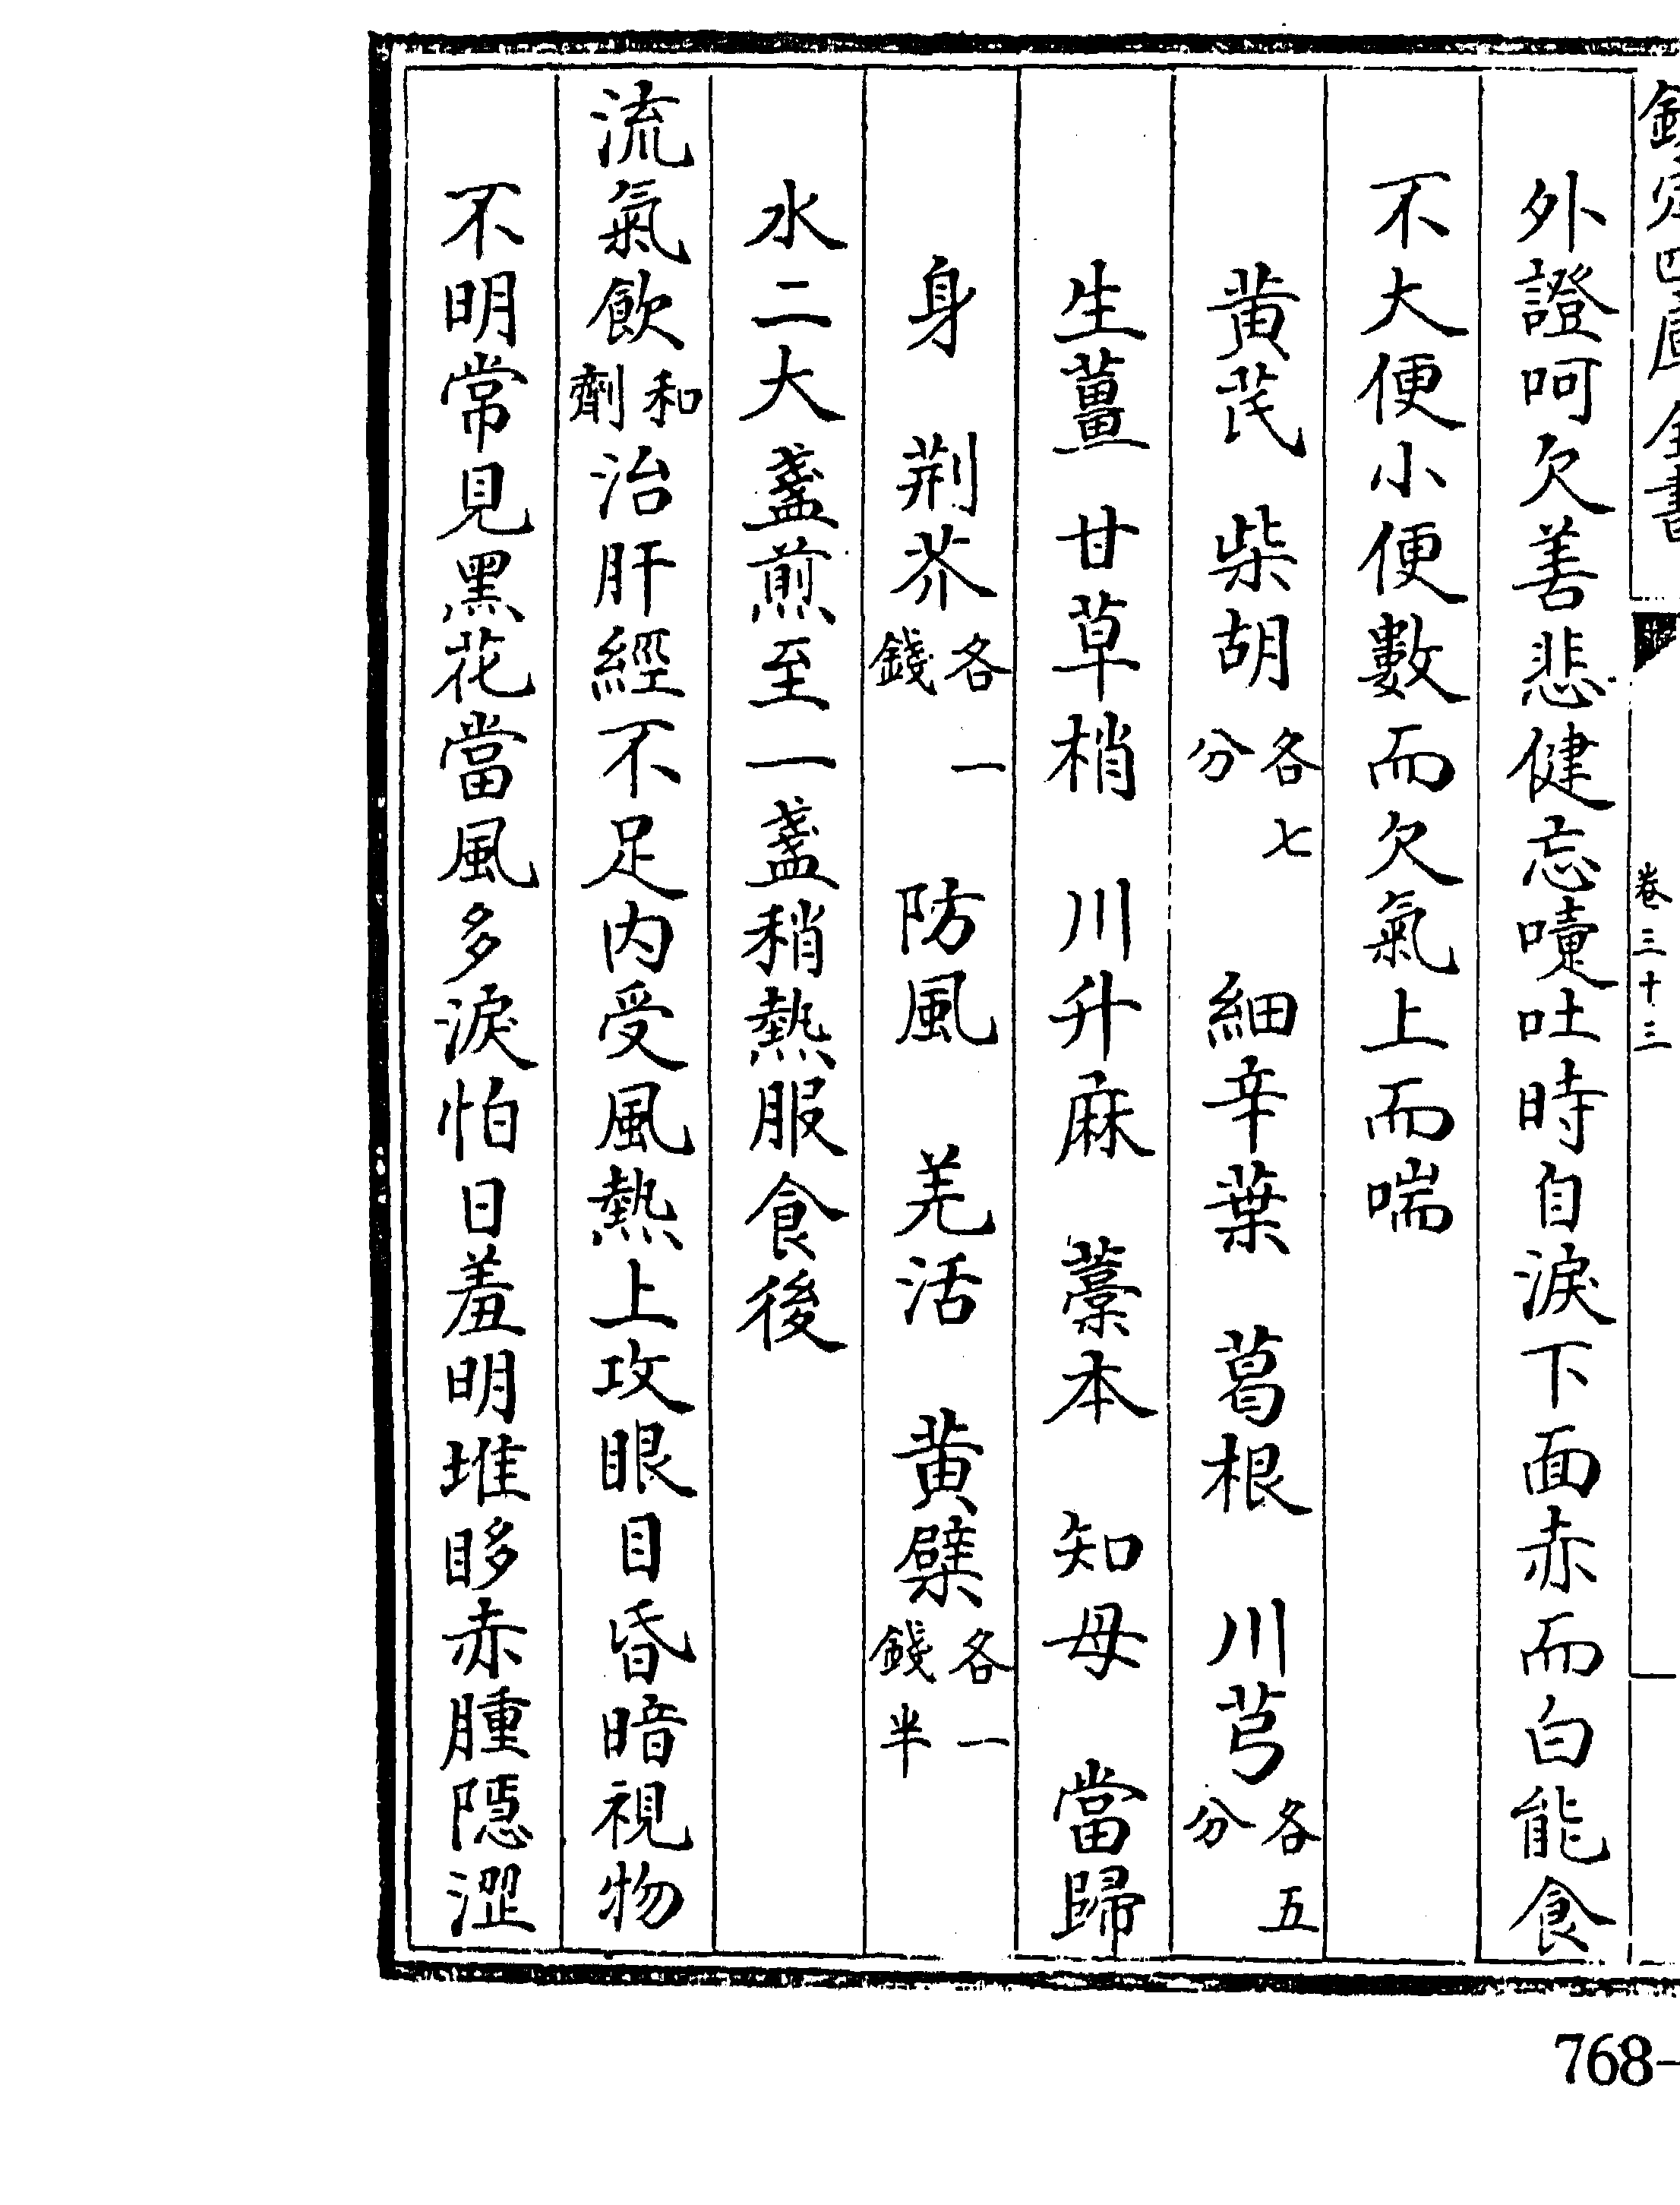 欽定四庫全書
卷三十三
外證呵欠善悲健忘嚏吐時自淚下面赤而白能食
不大便小便數而欠氣上而喘
黄芪 柴胡各七分 細辛葉 葛根 川芎各五分
生薑 甘草梢 川升麻 藁本 知母 當歸
身 荆芥各一錢 防風 羌活 黄檗各一錢半
水二大盞煎至一盞稍熱服食後
流氣飲和劑治肝經不足内受風熱上攻眼目昏暗視物
不明常見黑花當風多淚怕日羞明堆眵赤腫隠澀
768-